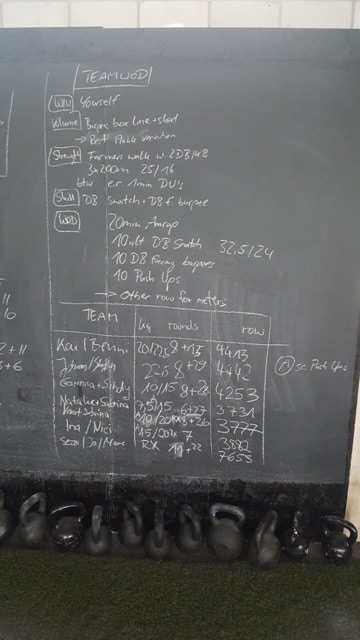 TEAMWOD
WU Yourself
Volume Burpee box line + sled
→ Rest Plank variation
Strength Farmers walk w. 2DB/KB
3x200m 25/16
btw e.r 1min DU's
Skill DB Snatch + DB f. burpee
WOD 20min Amrap
10 alt DB Snatch 32,5/24
10 DB facing burpees
10 Push Ups
→ Other row for meters
TEAM kg rounds row
Kai | Benni 20/22,5 8+13 4413
22,5 8+29 4442
Gamma + Sindy 10/15 8+28 4253
Natalie + Sabrina 7,5/15 6+27 3731
Sabrina 10/20 8+26 3777
Ina / Nici 15/20 7 3882
Sezo / Jo / Mone RX 11+22 7658
sc. Push Ups
2+11
3+6